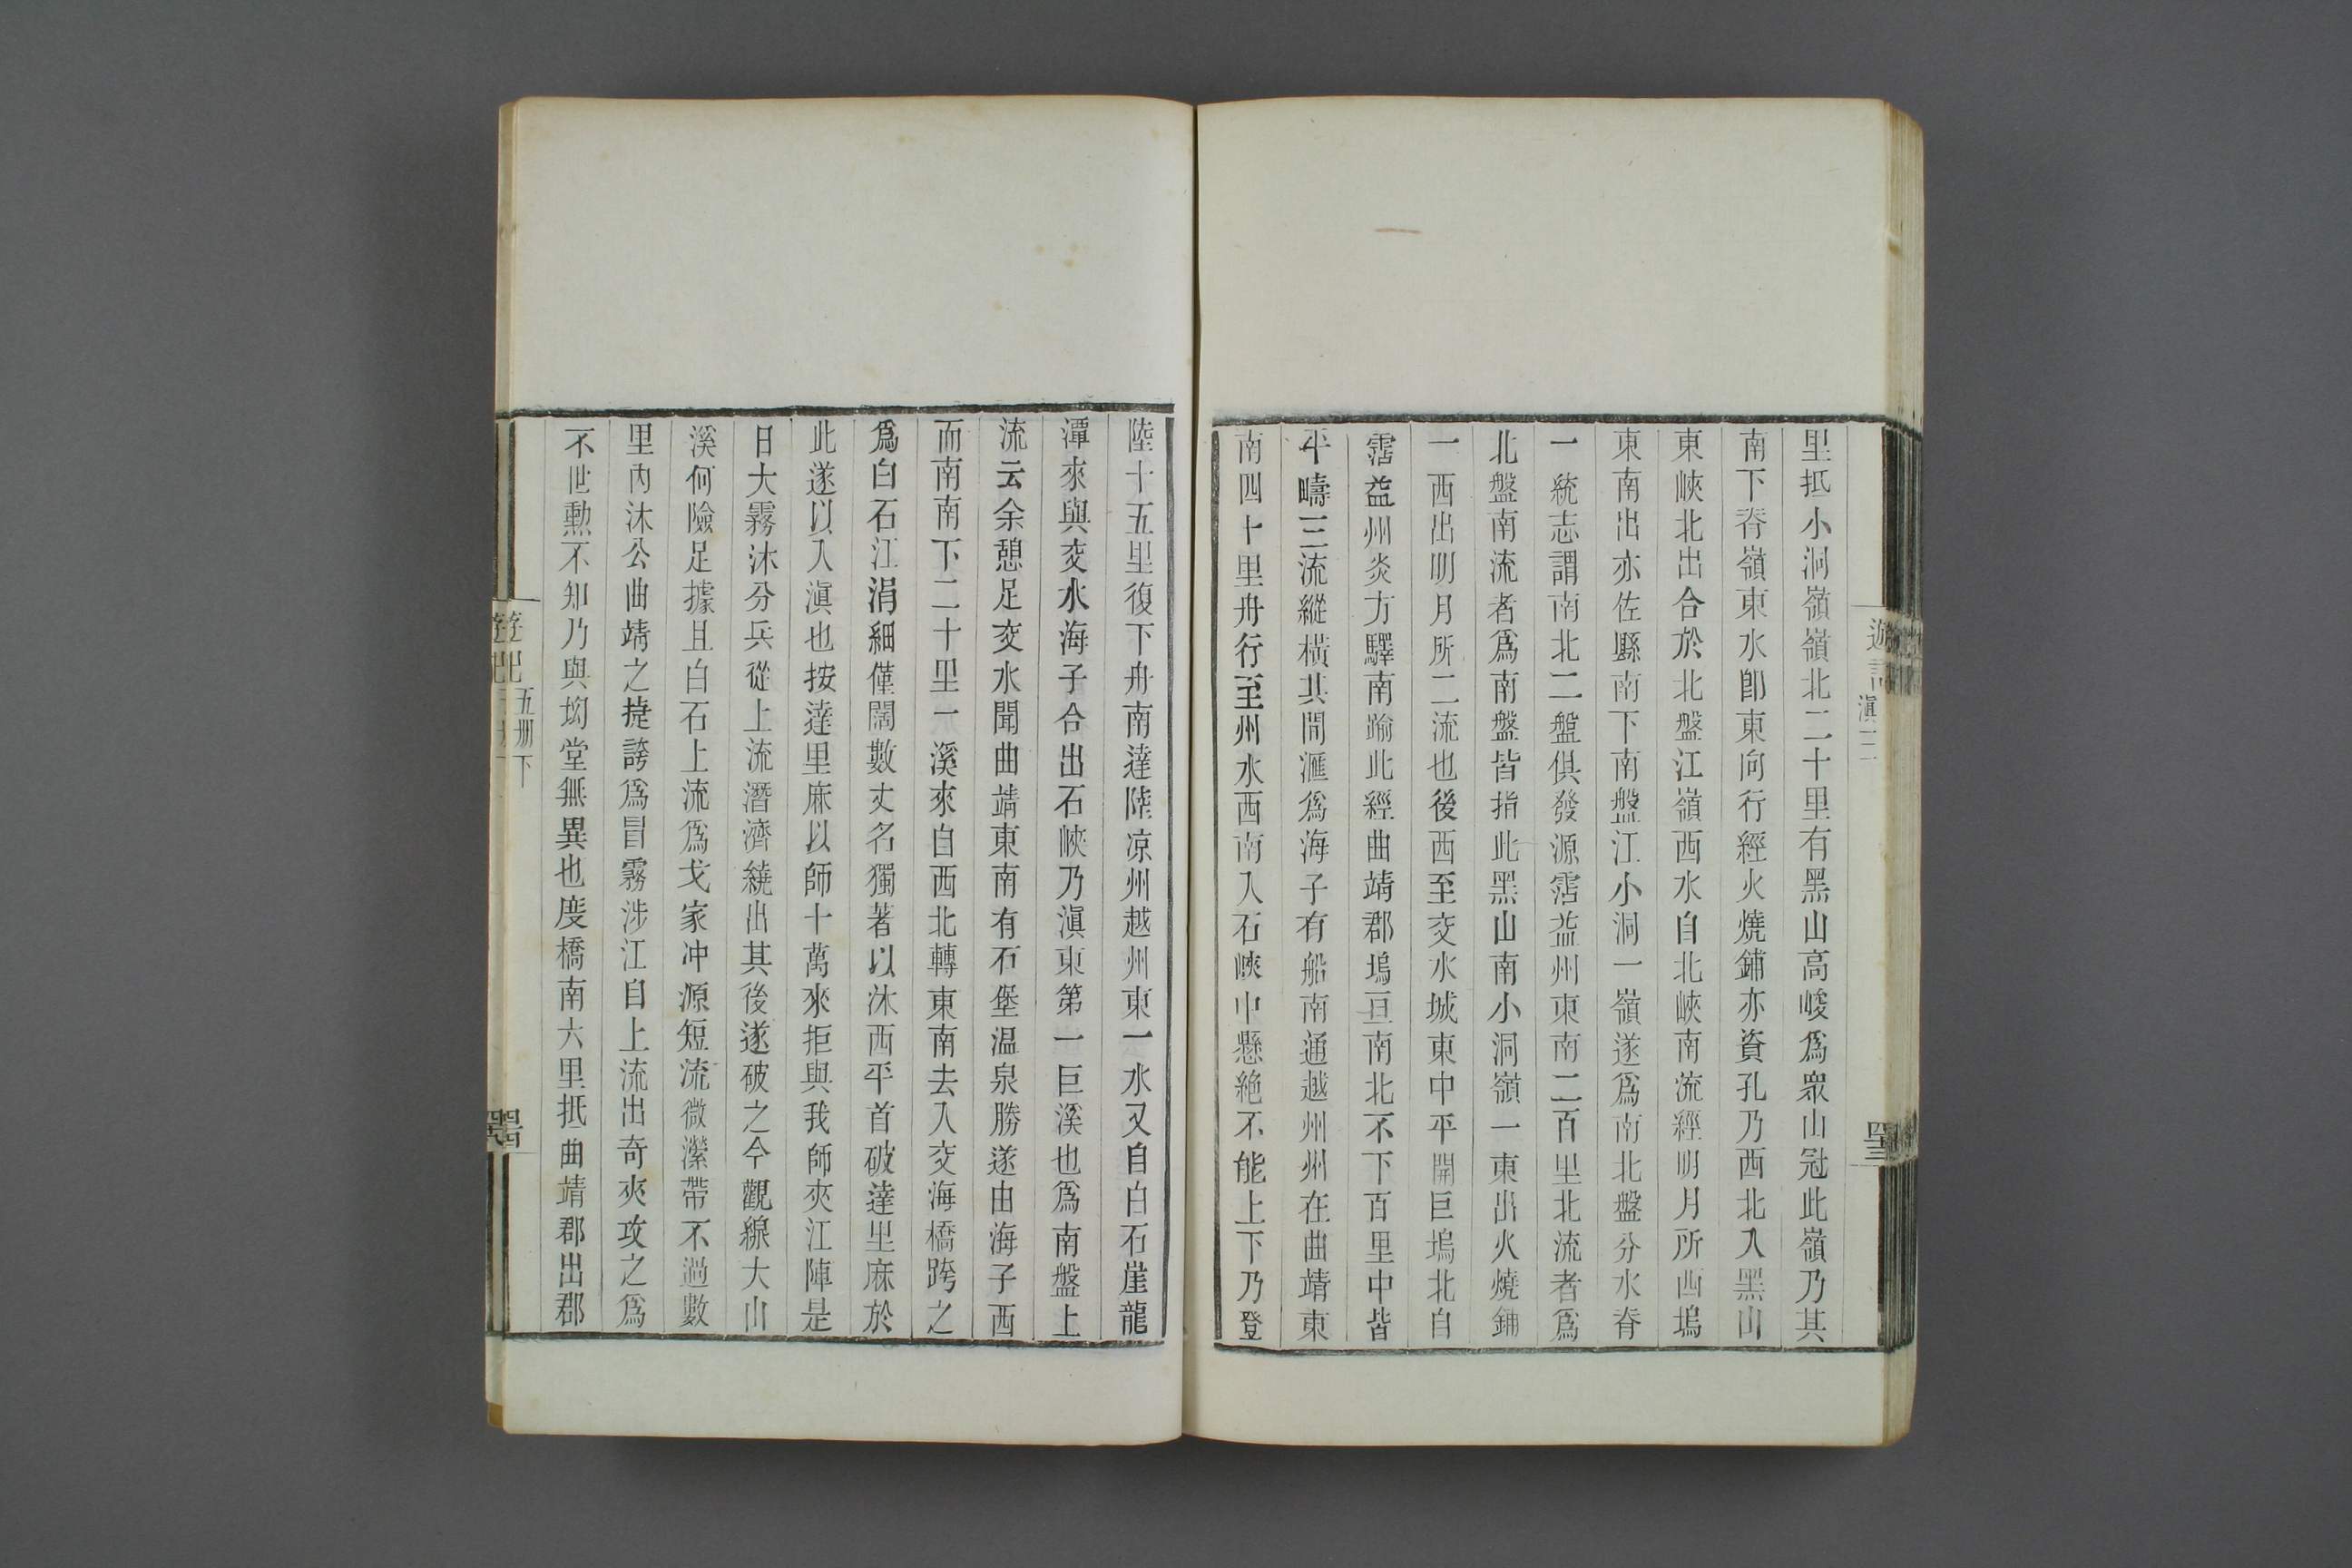 里抵小洞嶺嶺北二十里有黑山高峻爲眾山冠此嶺乃其
南下脊嶺東水卽東向行經火燒鋪亦資孔乃西北入黑山
東峽北出合於北盤江嶺西水自北峽南流經明月所西塢
東南出亦佐縣南下南盤江小洞一嶺遂爲南北盤分水脊
一統志謂南北二盤俱發源霑益州東南二百里北流者爲
北盤南流者爲南盤皆指此黑山南小洞嶺一東出火燒鋪
一西出明月所二流也後西至交水城東中平開巨塢北自
霑益州炎方驛南踰此經曲靖郡塢亘南北不下百里中皆
平疇三流縱橫其間滙爲海子有船南通越州州在曲靖東
南四十里舟行至州水西南入石峽中懸絶不能上下乃登
陸十五里復下舟南達陸凉州越州東一水又自白石崖龍
潭來與交水海子合出石峽乃滇東第一巨溪也爲南盤上
流云余憩足交水聞曲靖東南有石堡温泉勝遂由海子西
而南南下二十里一溪來自西北轉東南去入交海橋跨之
爲白石江涓細僅闊數丈名獨著以沐西平首破達里麻於
此遂以入滇也按達里麻以師十萬來拒與我師夾江陣是
日大霧沐分兵從上流潛濟繞出其後遂破之今觀線大山
溪何險足據且白石上流爲戈家冲源短流微瀠帶不過數
里內沐公曲靖之捷誇爲冒霧涉江自上流出奇夾攻之爲
不世勲不知乃與坳堂無異也度橋南六里抵曲靖郡出郡
遊記
滇二
五册下